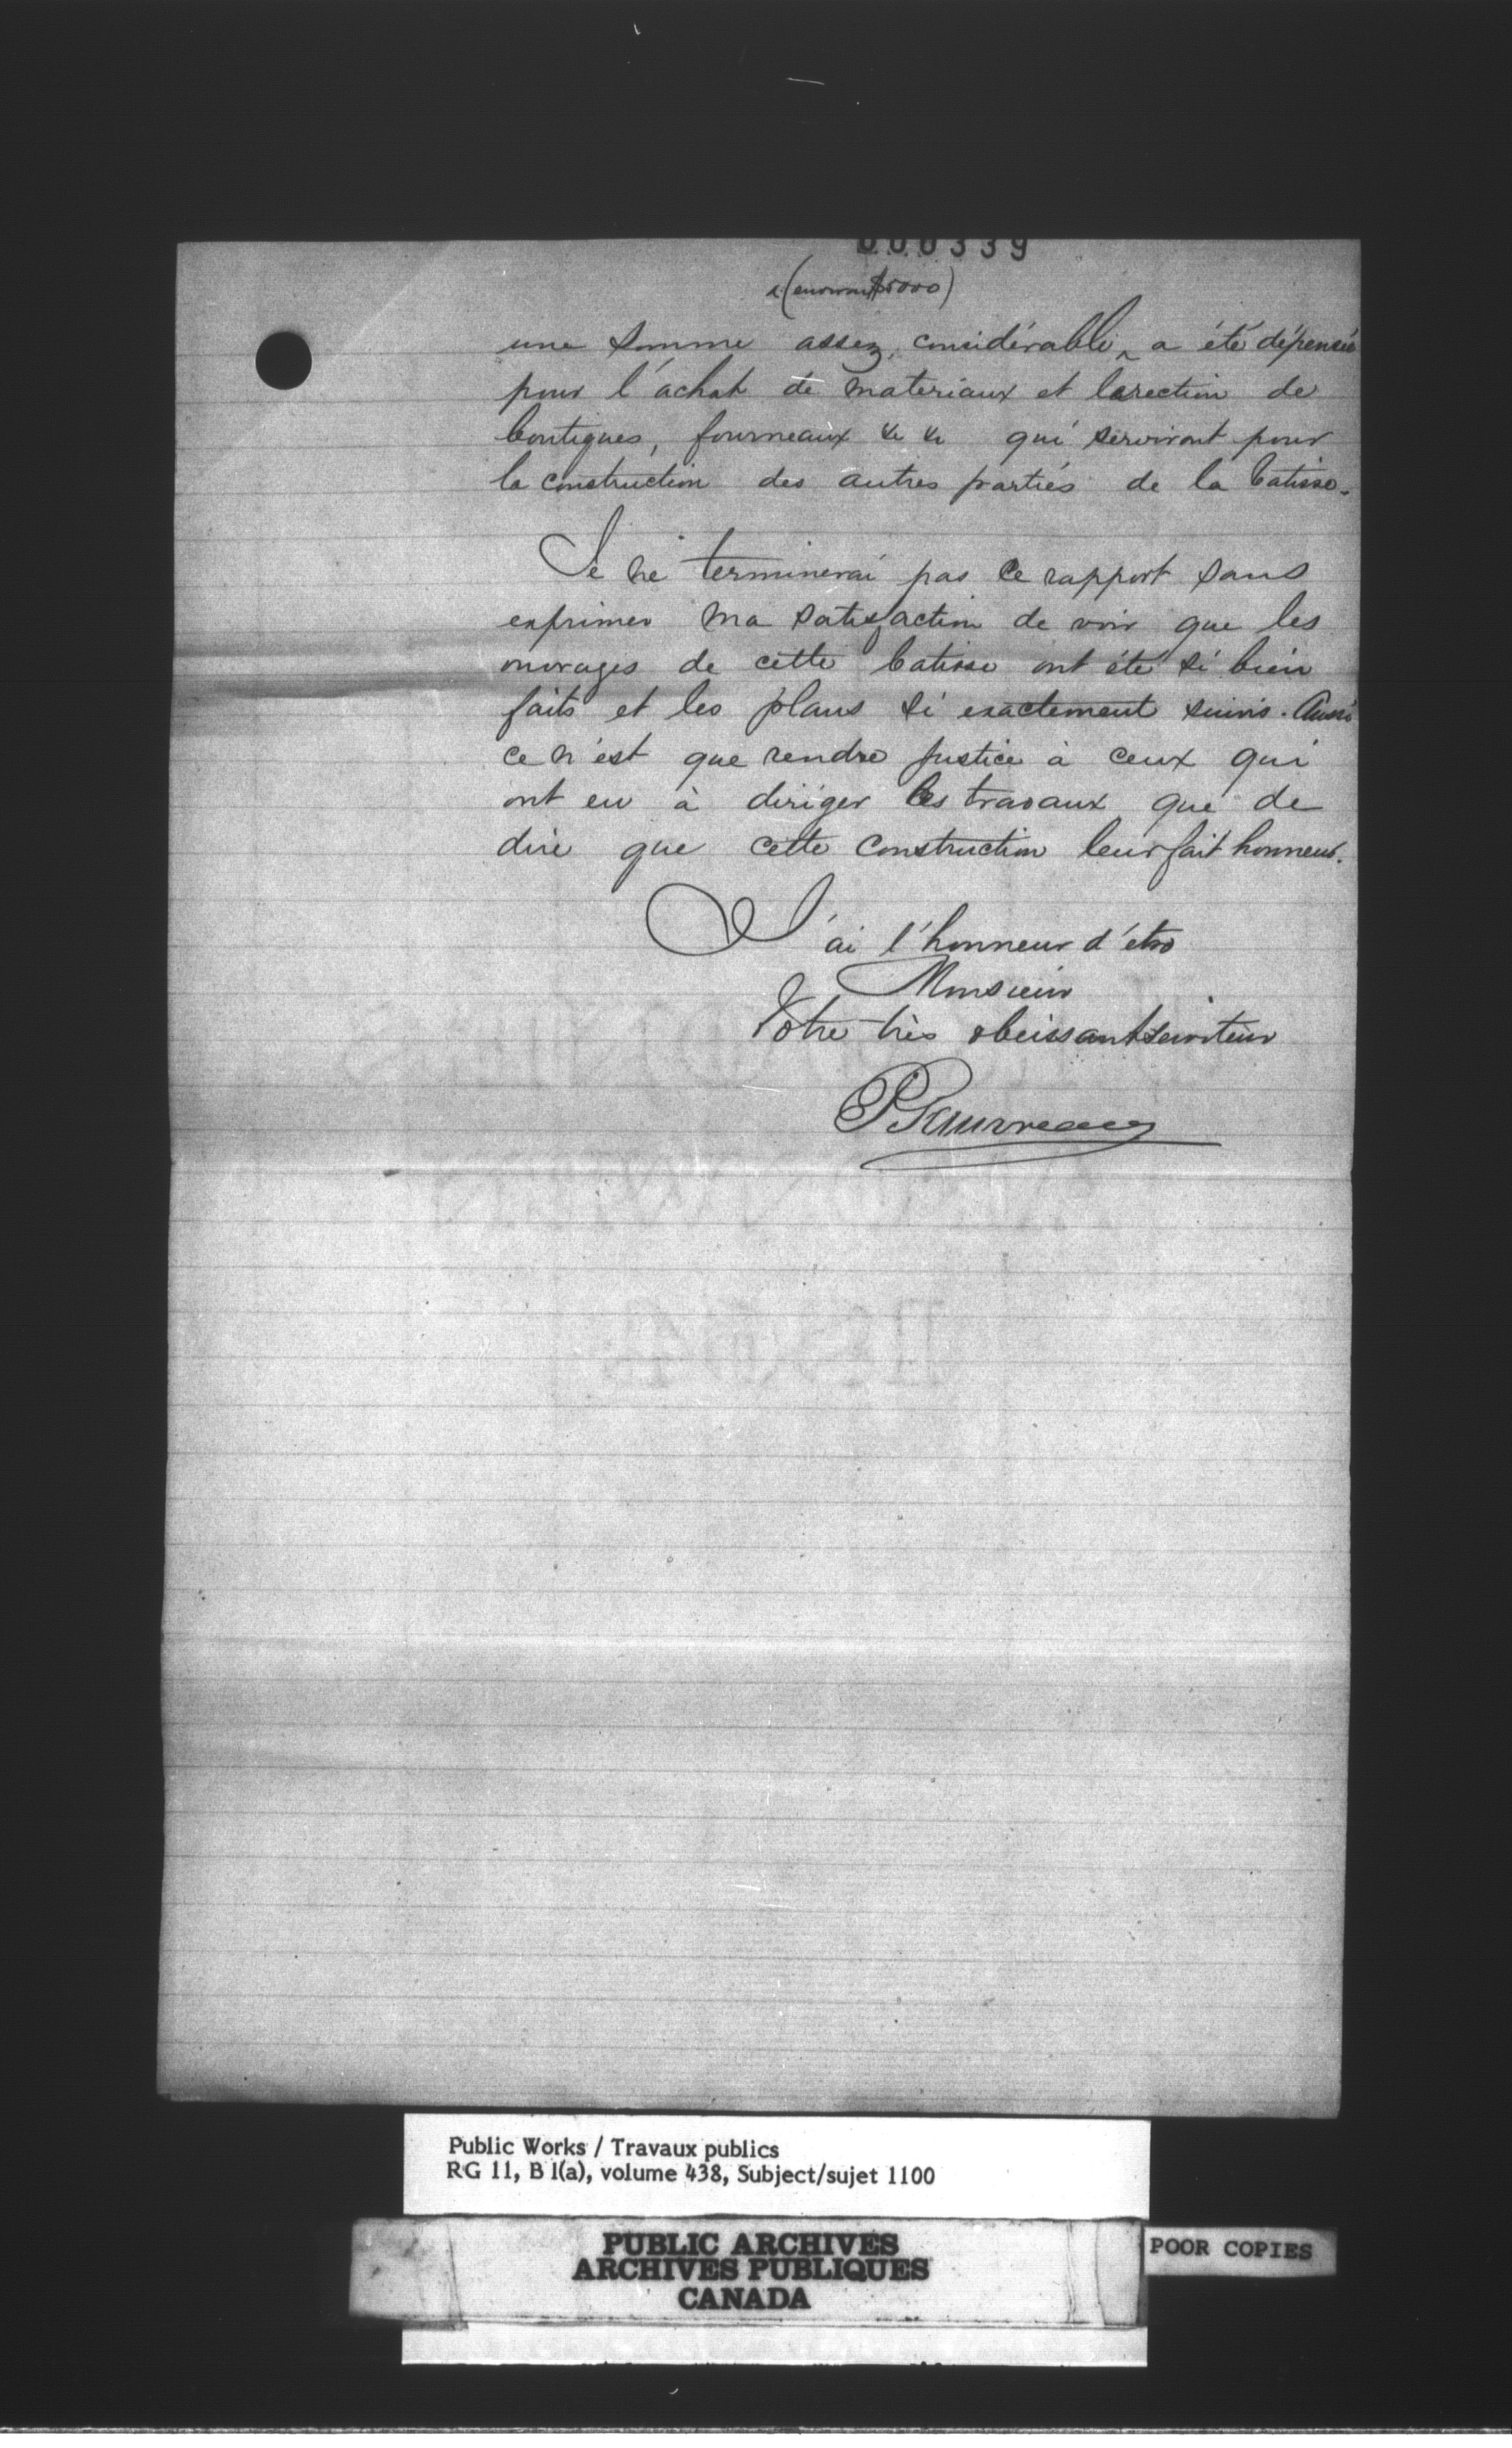 000339
(environ $5000)
une somme assez considérable a été dépensée
pour l'achat de materiaux et l'erection de
boutiques, fourneaux &c &c qui serviront pour
la construction des autres parties de la batisse.
Je ne terminerai pas ce rapport sans
exprimer ma satisfaction de voir que les
ouvrages de cette batisse ont été si bien
faits et les plans si exactement suivis. Aussi
ce n'est que rendre justice à ceux qui
ont eu à diriger les travaux que de
dire que cette construction leur fait honneur.
J'ai l'honneur d'être
Monsieur
Votre très obeissant serviteur
P. Gauvreau
Public Works / Travaux publics
RG 11, B 1(a), volume 438, Subject/sujet 1100
PUBLIC ARCHIVES
ARCHIVES PUBLIQUES
CANADA
POOR COPIES